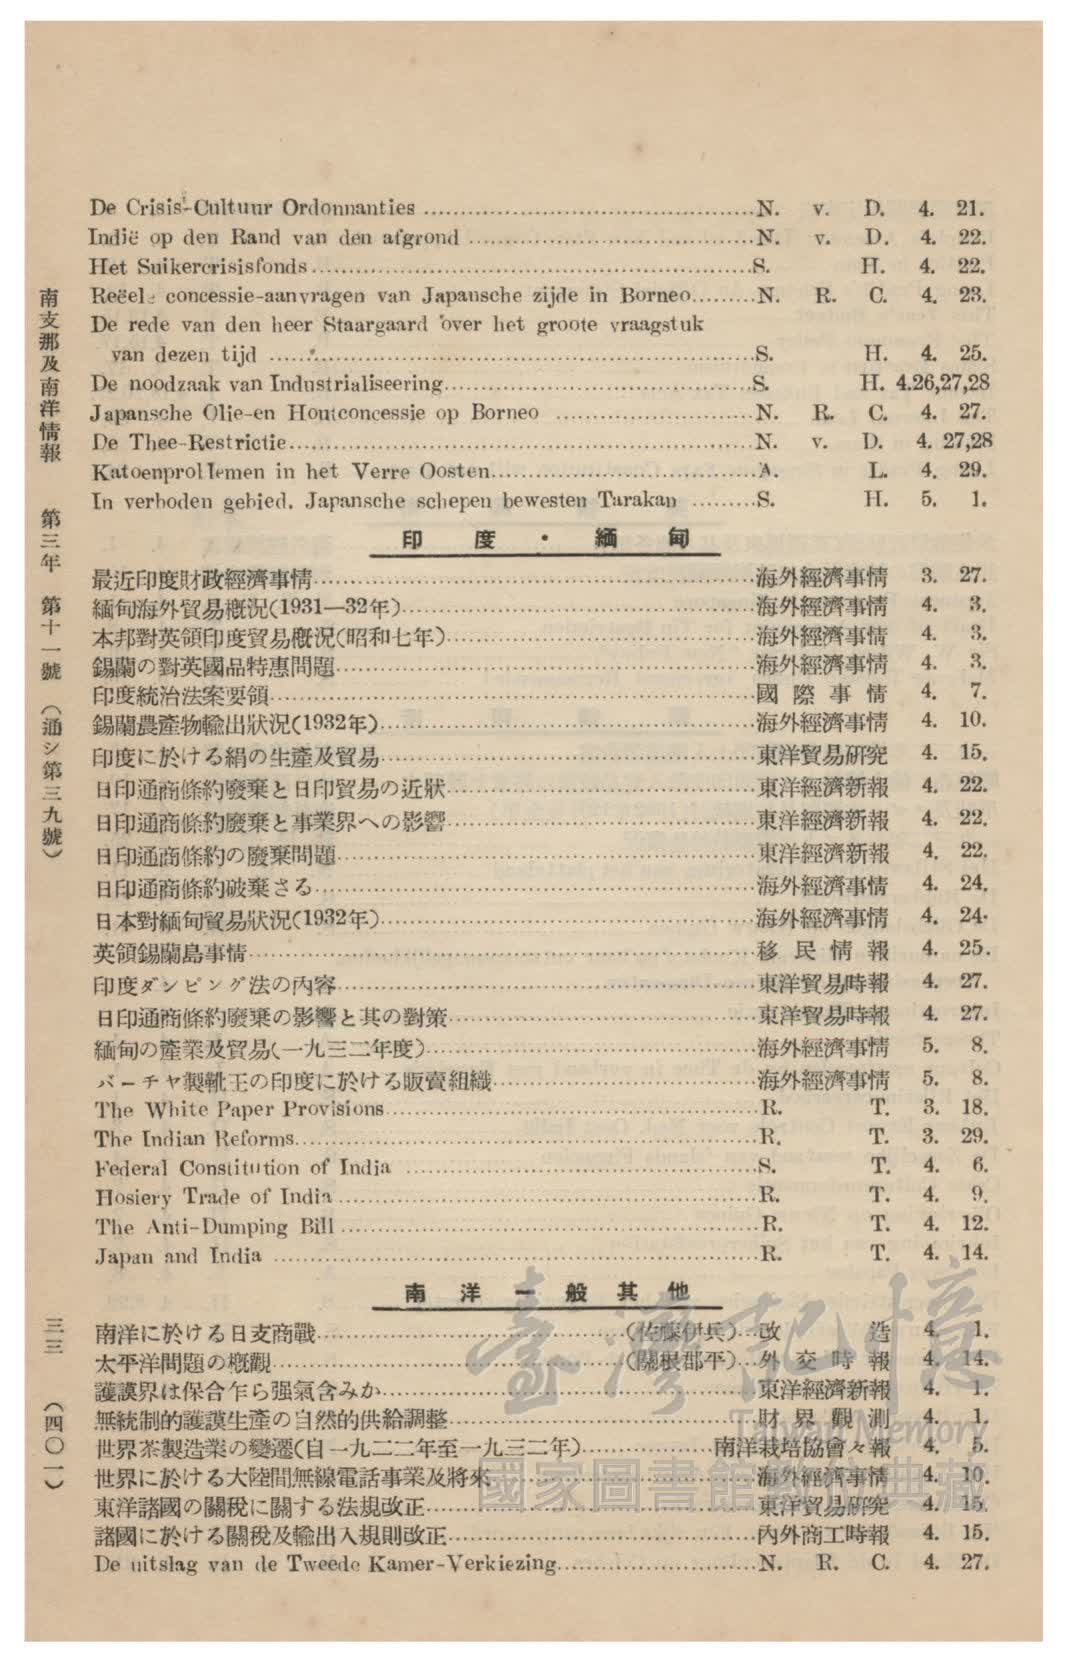 De Crisis-Cultuur Ordonnanties ........ N. v. D. 4. 21.
Indië op den Rand van den afgrond ........ N. v. D. 4. 22.
Het Suikercrisisfonds ........ S. H. 4. 22.
Reëele concessie-aanvragen van Japansche zijde in Borneo ........ N. R. C. 4. 23.
De rede van den heer Staargaard over het groote vraagstuk
van dezen tijd ........ S. H. 4. 25.
De noodzaak van Industrialiseering ........ S. H. 4.26,27,28
Japansche Olie-en Houtconcessie op Borneo ........ N. R. C. 4. 27.
De Thee-Restrictie ........ N. v. D. 4. 27,28
Katoenproblemen in het Verre Oosten ........ A. L. 4. 29.
In verboden gebied. Japansche schepen bewesten Tarakan ........ S. H. 5. 1.
印度・緬甸
最近印度財政經濟事情 ........ 海外經濟事情 3. 27.
緬甸海外貿易槪況(1931—32年) ........ 海外經濟事情 4. 3.
本邦對英領印度貿易槪況(昭和七年) ........ 海外經濟事情 4. 3.
錫蘭の對英國品特惠問題 ........ 海外經濟事情 4. 3.
印度統治法案要領 ........ 國際事情 4. 7.
錫蘭農產物輸出狀況(1932年) ........ 海外經濟事情 4. 10.
印度に於ける絹の生產及貿易 ........ 東洋貿易硏究 4. 15.
日印通商條約廢棄と日印貿易の近狀 ........ 東洋經濟新報 4. 22.
日印通商條約廢棄と事業界への影響 ........ 東洋經濟新報 4. 22.
日印通商條約の廢棄問題 ........ 東洋經濟新報 4. 22.
日印通商條約破棄さる ........ 海外經濟事情 4. 24.
日本對緬甸貿易狀況(1932年) ........ 海外經濟事情 4. 24.
英領錫蘭島事情 ........ 移民情報 4. 25.
印度ダンピング法の內容 ........ 東洋貿易時報 4. 27.
日印通商條約廢棄の影響と其の對策 ........ 東洋貿易時報 4. 27.
緬甸の產業及貿易(一九三二年度) ........ 海外經濟事情 5. 8.
バーチヤ製靴王の印度に於ける販賣組織 ........ 海外經濟事情 5. 8.
The White Paper Provisions ........ R. T. 3. 18.
The Indian Reforms ........ R. T. 3. 29.
Federal Constitution of India ........ S. T. 4. 6.
Hosiery Trade of India ........ R. T. 4. 9.
The Anti-Dumping Bill ........ R. T. 4. 12.
Japan and India ........ R. T. 4. 14.
南洋一般其他
南洋に於ける日支商戰 ........ (佐藤伊兵) ... 改造 4. 1.
太平洋問題の槪觀 ........ (關根郡平) ... 外交時報 4. 14.
護謨界は保合乍ら强氣含みか ........ 東洋經濟新報 4. 1.
無統制的護謨生產の自然的供給調整 ........ 財界觀測 4. 1.
世界茶製造業の變遷(自一九二二年至一九三二年) ........ 南洋栽培協會々報 4. 5.
世界に於ける大陸間無線電話事業及將來 ........ 海外經濟事情 4. 10.
東洋諸國の關稅に關する法規改正 ........ 東洋貿易硏究 4. 15.
諸國に於ける關稅及輸出入規則改正 ........ 內外商工時報 4. 15.
De uitslag van de Tweede Kamer-Verkiezing ........ N. R. C. 4. 27.
南支那及南洋情報 第三年 第十一號 (通シ第三九號)
三三 (四〇一)
臺灣記憶
Taiwan Memory
國家圖書館數位典藏